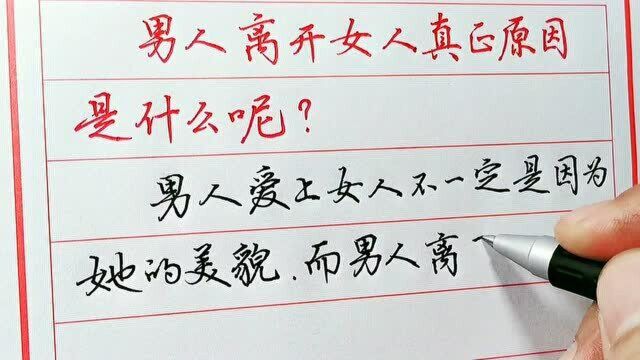 男人离开女人真正原因
是什么呢?
男人爱上女人不一定是因为
她的美貌.而男人离